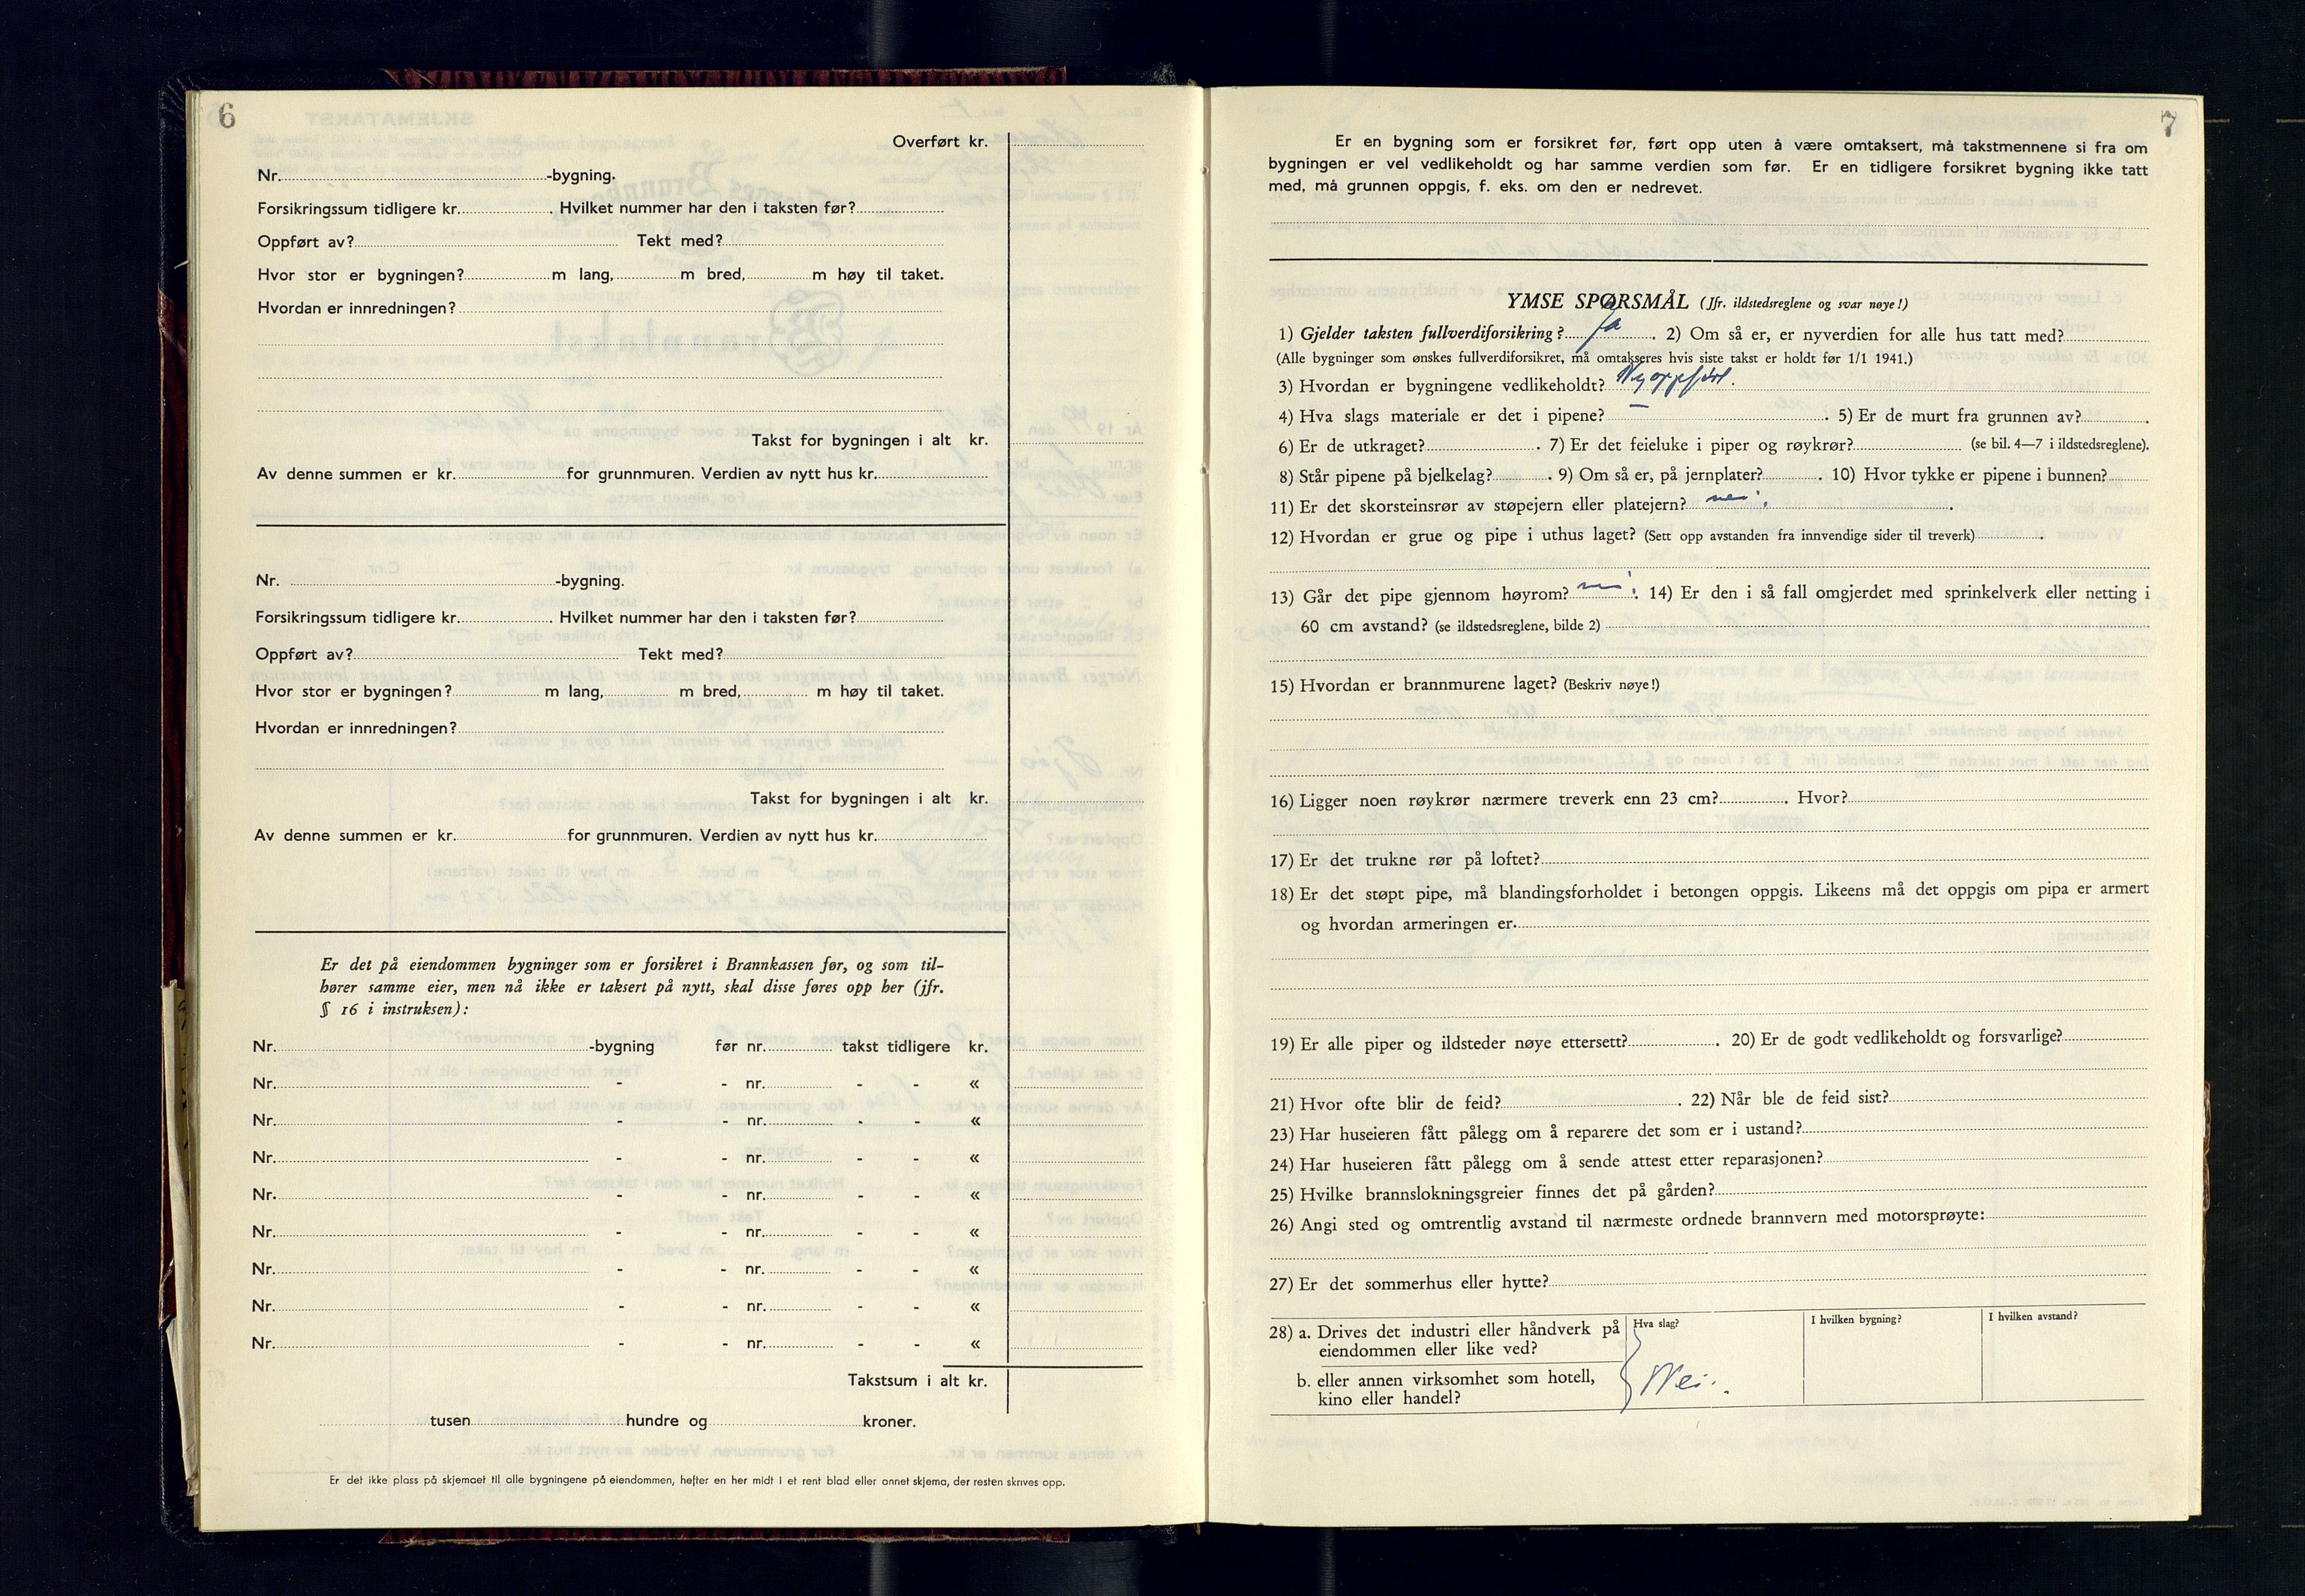 6
Overført kr.
Nr. -bygning.
Forsikringssum tidligere kr. . Hvilket nummer har den i taksten før?
Oppført av? Tekt med?
Hvor stor er bygningen? m lang, m bred, m høy til taket.
Hvordan er innredningen?
Takst for bygningen i alt kr.
Av denne summen er kr. for grunnmuren. Verdien av nytt hus kr.
Nr. -bygning.
Forsikringssum tidligere kr. . Hvilket nummer har den i taksten før?
Oppført av? Tekt med?
Hvor stor er bygningen? m lang, m bred, m høy til taket.
Hvordan er innredningen?
Takst for bygningen i alt kr.
Av denne summen er kr. for grunnmuren. Verdien av nytt hus kr.
Er det på eiendommen bygninger som er forsikret i Brannkassen før, og som til-
hører samme eier, men nå ikke er taksert på nytt, skal disse føres opp her (jfr.
§ 16 i instruksen):
Nr. -bygning før nr. takst tidligere kr.
Nr. - - nr. - - «
Nr. - - nr. - - «
Nr. - - nr. - - «
Nr. - - nr. - - «
Nr. - - nr. - - «
Nr. - - nr. - - «
Nr. - - nr. - - «
Nr. - - nr. - - «
Takstsum i alt kr.
tusen hundre og kroner.
Er det ikke plass på skjemaet til alle bygningene på eiendommen, hefter en her midt i et rent blad eller annet skjema, der resten skrives opp.
7
Er en bygning som er forsikret før, ført opp uten å være omtaksert, må takstmennene si fra om
bygningen er vel vedlikeholdt og har samme verdien som før. Er en tidligere forsikret bygning ikke tatt
med, må grunnen oppgis, f. eks. om den er nedrevet.
YMSE SPØRSMÅL (Jfr. ildstedsreglene og svar nøye!)
1) Gjelder taksten fullverdiforsikring? Ja . 2) Om så er, er nyverdien for alle hus tatt med?
(Alle bygninger som ønskes fullverdiforsikret, må omtakseres hvis siste takst er holdt før 1/1 1941.)
3) Hvordan er bygningene vedlikeholdt? Nyoppført.
4) Hva slags materiale er det i pipene? — . 5) Er de murt fra grunnen av? .
6) Er de utkraget? . 7) Er det feieluke i piper og røykrør? (se bil. 4—7 i ildstedsreglene).
8) Står pipene på bjelkelag? . 9) Om så er, på jernplater? . 10) Hvor tykke er pipene i bunnen?
11) Er det skorsteinsrør av støpejern eller platejern? nei. .
12) Hvordan er grue og pipe i uthus laget? (Sett opp avstanden fra innvendige sider til treverk) .
13) Går det pipe gjennom høyrom? nei. . 14) Er den i så fall omgjerdet med sprinkelverk eller netting i
60 cm avstand? (se ildstedsreglene, bilde 2)
15) Hvordan er brannmurene laget? (Beskriv nøye!)
16) Ligger noen røykrør nærmere treverk enn 23 cm? . Hvor?
17) Er det trukne rør på loftet?
18) Er det støpt pipe, må blandingsforholdet i betongen oppgis. Likeens må det oppgis om pipa er armert
og hvordan armeringen er.
19) Er alle piper og ildsteder nøye ettersett? . 20) Er de godt vedlikeholdt og forsvarlige?
21) Hvor ofte blir de feid? . 22) Når ble de feid sist?
23) Har huseieren fått pålegg om å reparere det som er i ustand?
24) Har huseieren fått pålegg om å sende attest etter reparasjonen?
25) Hvilke brannslokningsgreier finnes det på gården?
26) Angi sted og omtrentlig avstand til nærmeste ordnede brannvern med motorsprøyte:
27) Er det sommerhus eller hytte?
28) a. Drives det industri eller håndverk på Hva slag? I hvilken bygning? I hvilken avstand?
eiendommen eller like ved?
b. eller annen virksomhet som hotell, Nei.
kino eller handel?